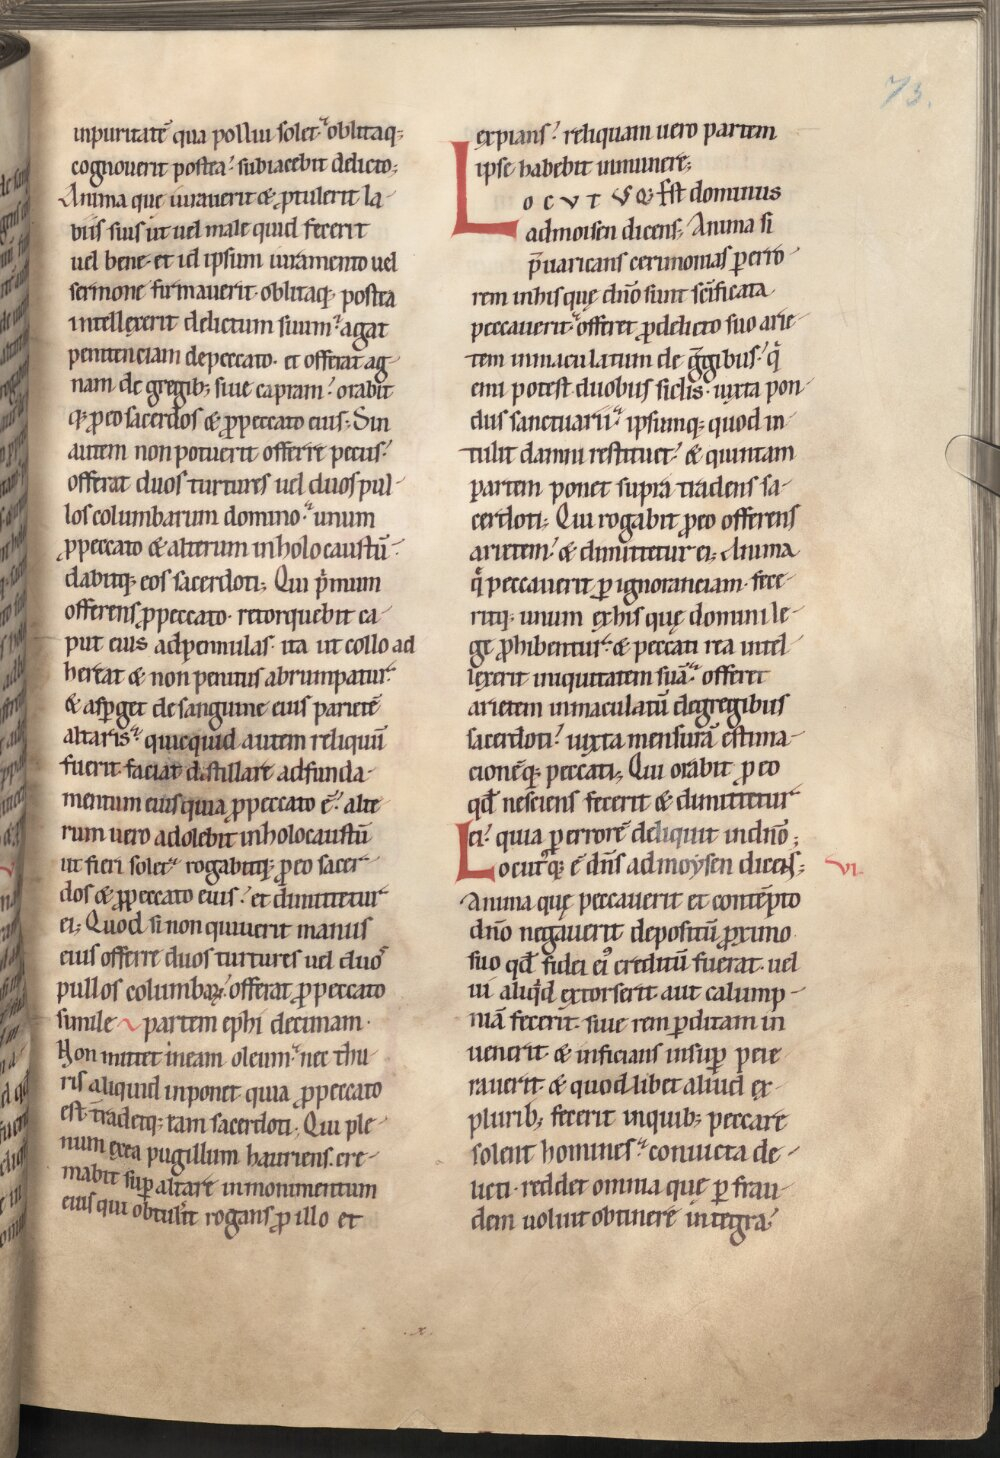 73.
inpuritatē qua pollui solet. oblitaq;
cognouerit postea. subiacebit delicto;
Anima que iurauerit & ꝓtulerit la-
biis suis ut uel male quid fecerit
uel bene. et id ipsum iuramento uel
sermone firmauerit. oblitaq; postea
intellexerit delictum suum. agat
penitenciam depeccato. et offerat ag-
nam de gregib; siue capram. orabit
q; ꝓ eo sacerdos & ꝓpeccato eius; Sin
autem non potuerit offerre pecus.
offerat duos turtures uel duos pul-
los columbarum domino. unum
ꝓpeccato & alterum inholocaustū.
dabitq; eos sacerdoti; Qui p̄mum
offerens ꝓpeccato. retorquebit ca-
put eius adpennulas. ita ut collo ad
hereat & non penitus abrumpatur.
& asꝑget desanguine eius parietē
altaris. quicquid autem reliquū
fuerit. faciat distillare adfunda-
mentum eius quia ꝓpeccato ē. alte-
rum uero adolebit inholocaustū
ut fieri solet. rogabitq; ꝓ eo sacer-
dos & ꝓpeccato eius. et dimittetur
ei; Quod si non quiuerit manus
eius offerre duos turtures uel duos
pullos columbaꝝ. offerat ꝓpeccato
simile partem ephi decimam.
Non mittet ineam oleum. nec thu-
ris aliquid inponet quia ꝓpeccato
est. tradetq; eam sacerdoti; Qui ple-
num exea pugillum hauriens. cre-
mabit suꝑ altare inmonimentum
eius qui obtulit rogans ꝓ illo et
expians. reliquam uero partem
ipse habebit inmunere;
LOCVTVSQ; Est dominus
admoisen dicens; Anima si
p̄uaricans cerimonias ꝑ erro-
rem inhis quę dn̄o sunt sc̄ificata
peccauerit. offeret ꝓdelicto suo arie-
tem inmaculatum de gͣgibus. q̄
emi potest duobus siclis. iuxta pon-
dus sanctuarii. ipsumq; quod in-
tulit damni restituet. & quintam
partem ponet supra tradens sa-
cerdoti; Qui rogabit ꝓ eo offerens
arietem. & dimittetur ei; Anima
q̄ peccauerit ꝑ ignoranciam. fece-
ritq; unum exhis quę domini le-
ge ꝓhibentur. & peccati rea intel-
lexerit iniquitatem suā. offeret
arietem inmaculatū degregibus
sacerdoti. iuxta mensurā estima-
cionēq; peccati; Qui orabit ꝓ eo
qđ nesciens fecerit & dimittetur
ei. quia ꝑ errorē deliquit indn̄o;
Locutꝰq; ē dn̄s admoysen dicens; VI.
Anima quę peccauerit et contēpto
dn̄o negauerit depositū ꝓximo
suo qđ fidei eiꝰ creditū fuerat. uel
ui aliqͥd extorserit aut calump-
niā fecerit. siue rem ꝑditam in
uenerit. & inficians insuꝑ peie-
rauerit & quodlibet aliud ex-
plurib; fecerit inquib; peccare
solent homines. conuicta de-
licti. reddet omnia quę ꝑ frau-
dem uoluit obtinere integra.